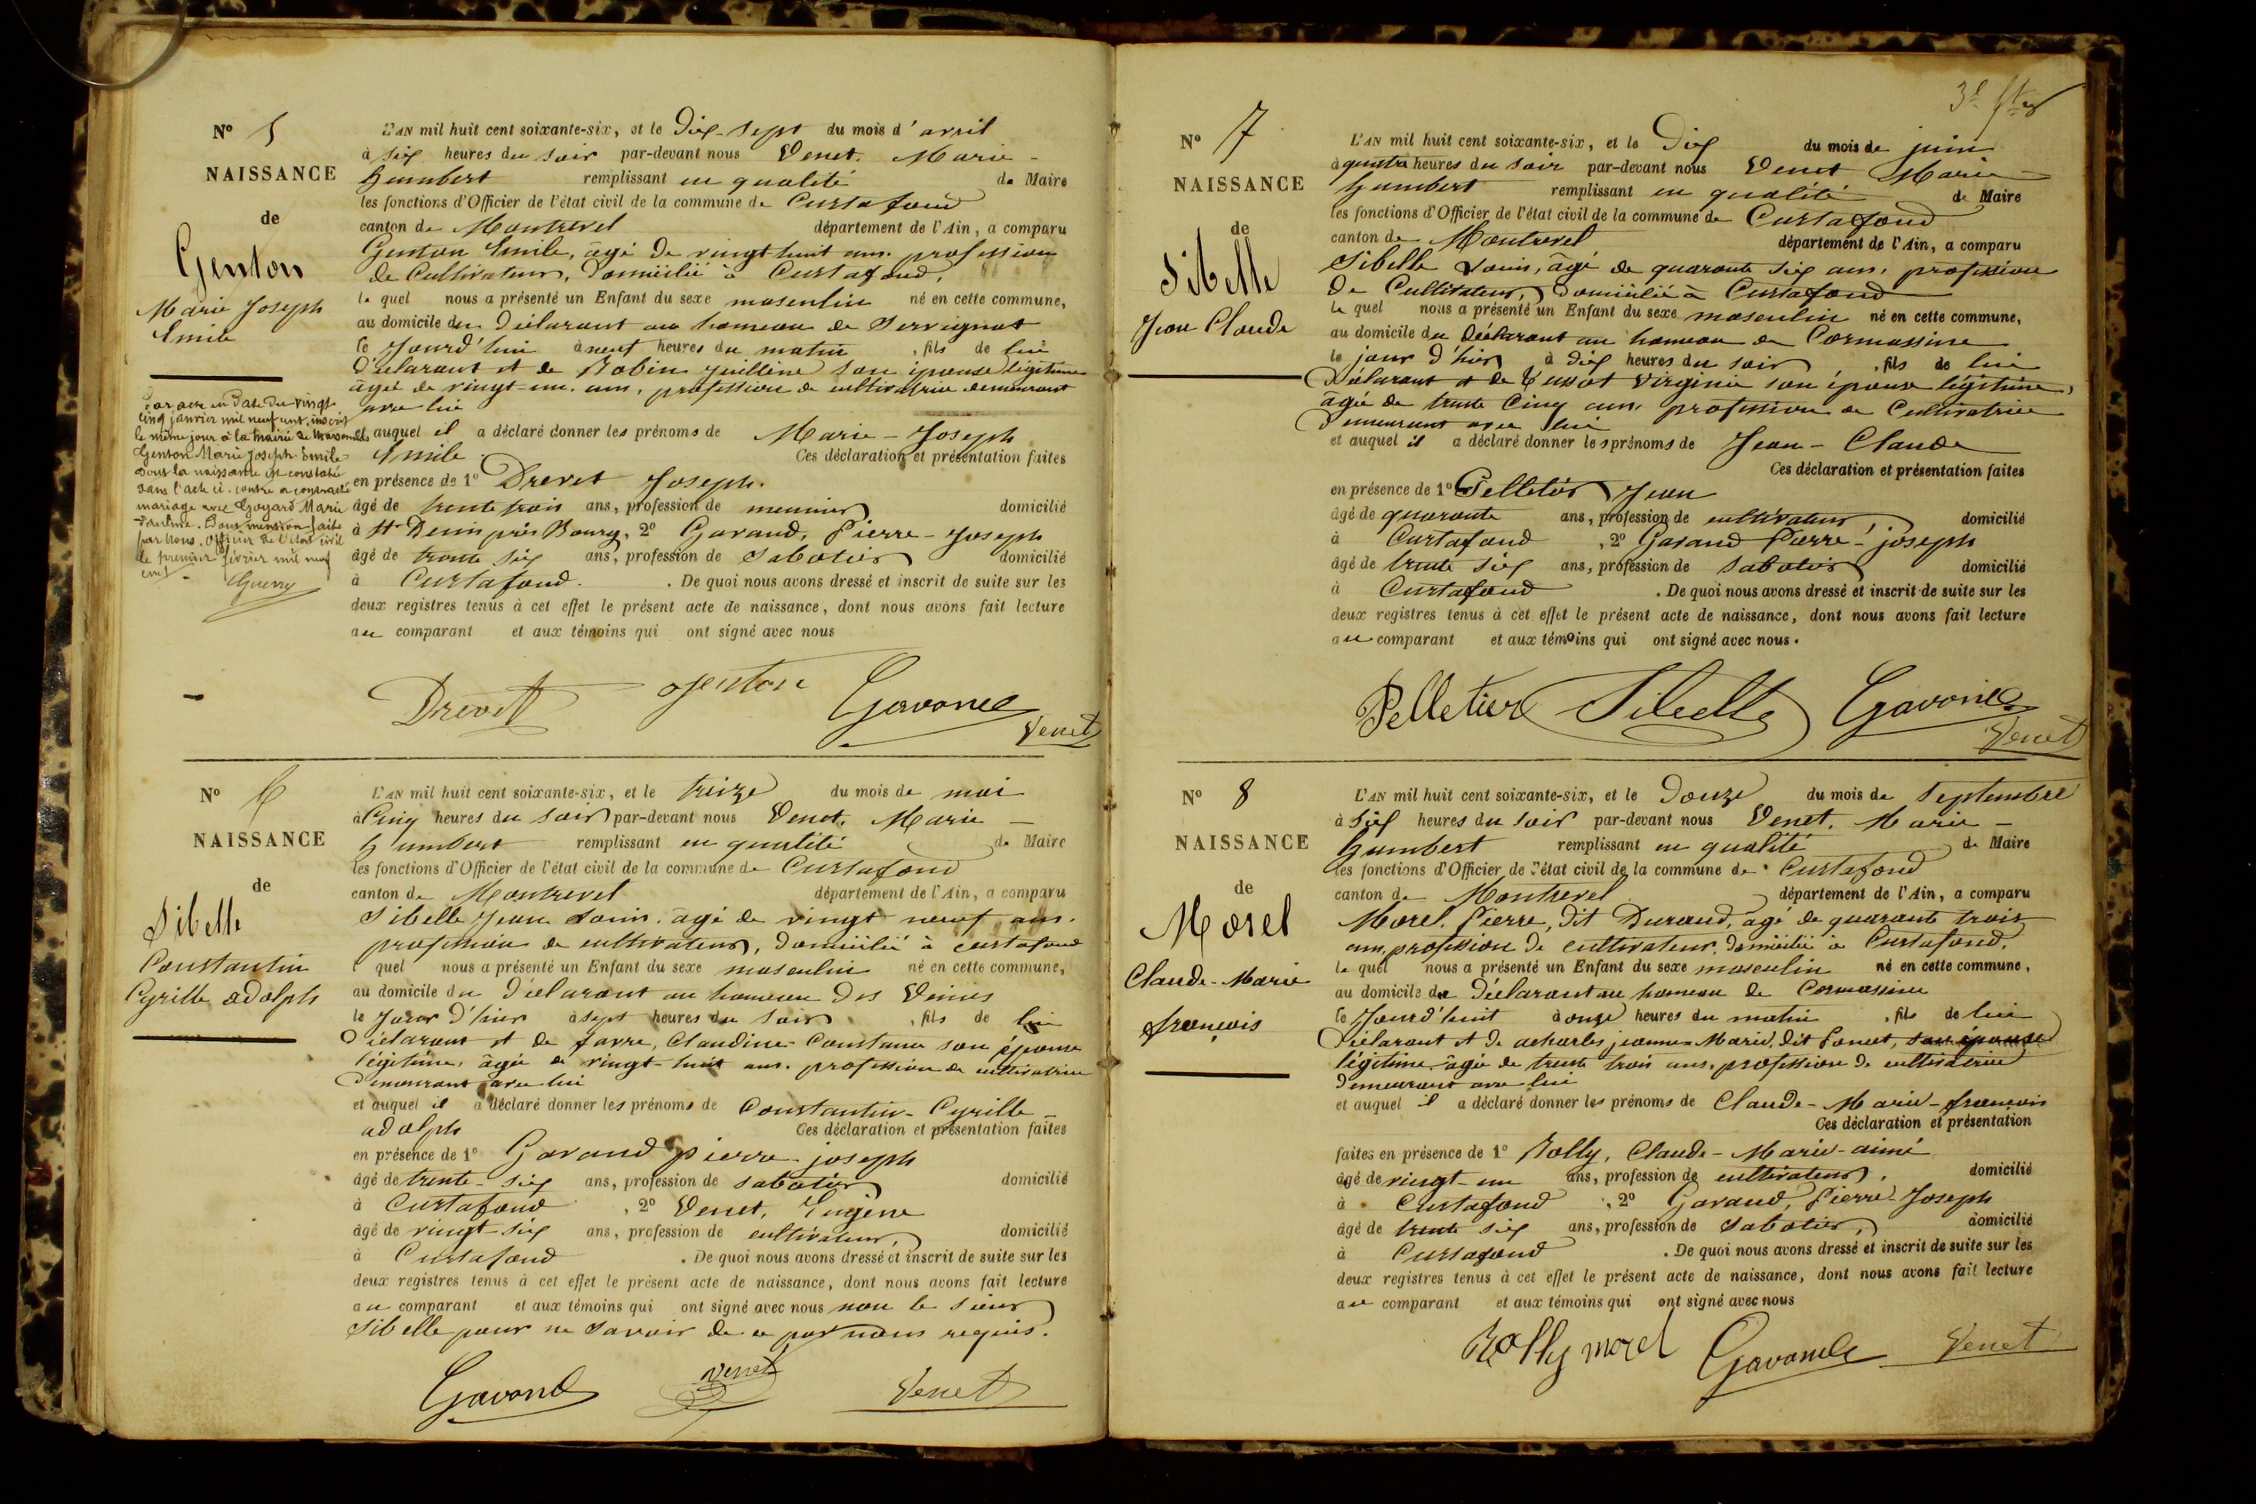 N° 5
NAISSANCE
de
Genton
Marie Joseph
Emile
Par acte en date du vingt
cinq janvier mil neuf cent, inscrit
le même jour à la mairie de
Genton Marie Joseph Emile
dont la naissance est constatée
dans l'acte ci-contre a contracté
mariage avec Goyard Marie
. Dont mention faite
par nous, Officier de l'état civil
le premier février mil neuf
cent
Guerry
L'AN mil huit cent soixante-six, et le Dix-sept du mois d'avril
à six heures du soir par-devant nous Venet, Marie-
humbert remplissant en qualité de Maire
les fonctions d'Officier de l'état civil de la commune de Curtafond
canton de Montrevel département de l'Ain, a comparu
Genton Emile, âgé de vingt huit ans, profession
de Cultivateur, domicilié à Curtafond,
le quel nous a présenté un Enfant du sexe masculin né en cette commune,
au domicile du Déclarant au hameau de Servignat
ce Jourd'hui à neuf heures du matin, fils de lui
Déclarant et de Robin son épouse légitime
âgée de vingt-un ans, profession de cultivatrice demeurant
avec lui
et auquel il a déclaré donner les prénoms de Marie-Joseph
Emile. Ces déclaration et présentation faites
en présence de 1° Drevet Joseph.
âgé de trente trois ans, profession de meunier domicilié
à St Denis près Bourg, 2° Gavand, Pierre-Joseph
âgé de trente six ans, profession de Sabotier domicilié
à Curtafond. . De quoi nous avons dressé et inscrit de suite sur les
deux registres tenus à cet effet le présent acte de naissance, dont nous avons fait lecture
au comparant et aux témoins qui ont signé avec nous
Drevet Genton Gavand
Venet
N° 6
NAISSANCE
de
Sibelle
Constantin
Cyrille adolph
L'AN mil huit cent soixante-six, et le treize du mois de mai
à Cinq heures du soir par-devant nous Venet, Marie-
humbert remplissant en qualité de Maire
les fonctions d'Officier de l'état civil de la commune de Curtafond
canton de Montrevel département de l'Ain, a comparu
Sibelle Jean Louis, âgé de vingt neuf ans.
profession de cultivateur, domicilié à Curtafond
le quel nous a présenté un Enfant du sexe masculin né en cette commune,
au domicile du Déclarant au hameau des
le Jour d'hier à sept heures du soir, fils de lui
Déclarant et de favre, Claudine-Constance son épouse
légitime, âgée de vingt-huit ans. profession de cultivatrice
demeurant avec lui
et auquel il a déclaré donner les prénoms de Constantin-Cyrille-
adolph Ces déclaration et présentation faites
en présence de 1° Gavand pierre-joseph
âgé de trente-six ans, profession de sabotier domicilié
à Curtafond, 2° Venet, Eugène
âgé de vingt-six ans, profession de cultivateur, domicilié
à Curtafond . De quoi nous avons dressé et inscrit de suite sur les
deux registres tenus à cet effet le présent acte de naissance, dont nous avons fait lecture
au comparant et aux témoins qui ont signé avec nous non le sieur
Sibelle pour ne savoir de ce par nous requis.
Gavand Venet Venet
N° 7
NAISSANCE
de
Sibelle
Jean Claude
L'AN mil huit cent soixante-six, et le Dix du mois de juin
à quatre heures du soir par-devant nous Venet Marie-
humbert remplissant en qualité de Maire
les fonctions d'Officier de l'état civil de la commune de Curtafond
canton de Montrevel département de l'Ain, a comparu
Sibelle Louis, âgé de quarante six ans, profession
de Cultivateur, domicilié à Curtafond
le quel nous a présenté un Enfant du sexe masculin né en cette commune,
au domicile du Déclarant au hameau de Cormassine
le jour d'hier à dix heures du soir, fils de lui
Déclarant et de Virginie son épouse légitime,
âgée de trente Cinq ans, profession de Cultivatrice
demeurant avec lui
et auquel il a déclaré donner les prénoms de Jean-Claude
Ces déclaration et présentation faites
en présence de 1° Pelletier Jean
âgé de quarante ans, profession de cultivateur, domicilié
à Curtafond, 2° Gavand Pierre-joseph
âgé de trente six ans, profession de sabotier domicilié
à Curtafond . De quoi nous avons dressé et inscrit de suite sur les
deux registres tenus à cet effet le présent acte de naissance, dont nous avons fait lecture
au comparant et aux témoins qui ont signé avec nous.
Pelletier Sibelle Gavand
Venet
N° 8
NAISSANCE
de
Morel
Claude-Marie
françois
L'AN mil huit cent soixante-six, et le Douze du mois de Septembre
à six heures du soir par-devant nous Venet, Marie-
humbert remplissant en qualité de Maire
les fonctions d'Officier de l'état civil de la commune de Curtafond
canton de Montrevel département de l'Ain, a comparu
Morel, Pierre, dit Durand, âgé de quarante trois
ans, profession de cultivateur, domicilié à Curtafond.
le quel nous a présenté un Enfant du sexe masculin né en cette commune,
au domicile du Déclarant au hameau de Cormassine
ce Jourd'huit à onze heures du matin, fils de lui
Déclarant et de jeanne-Marie, dit Poncet, son épouse
légitime, âgée de trente trois ans, profession de cultivatrice
demeurant avec lui
et auquel il a déclaré donner les prénoms de Claude-Marie-françois
Ces déclaration et présentation
faites en présence de 1° Rolly, Claude-Marie-aimé
âgé de vingt-un ans, profession de cultivateur, domicilié
à Curtafond, 2° Gavand, Pierre-Joseph
âgé de trente six ans, profession de Sabotier, domicilié
à Curtafond . De quoi nous avons dressé et inscrit de suite sur les
deux registres tenus à cet effet le présent acte de naissance, dont nous avons fait lecture
au comparant et aux témoins qui ont signé avec nous
Rolly morel Gavand Venet